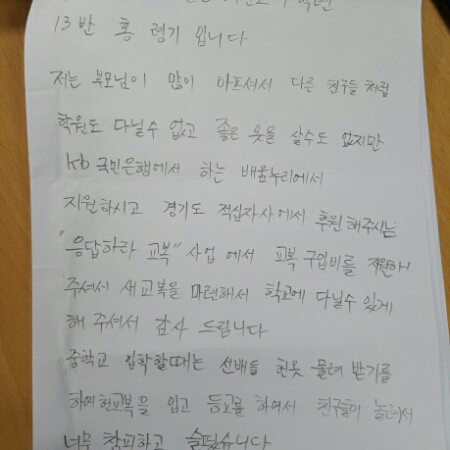 13반 홍 령기 입니다
저는 부모님이 많이 아프셔서 다른 친구들 처럼
학원도 다닐수 없고 좋은 옷을 살수도 없지만
kb 국민은행에서 하는 배움누리에서
지원하시고 경기도 적십자사에서 후원해주시는
"응답하라 교복" 사업에서 교복 구입비를 지원하
주셔서 새교복을 마련해서 학교에 다닐수 있게
해 주셔서 감사 드립니다
중학교 입학할때는 선배들 헌옷 물려 받기를
하여 헌교복을 입고 등교를 하여서 친구들이 놀려서
너무 창피하고 슬펐습니다